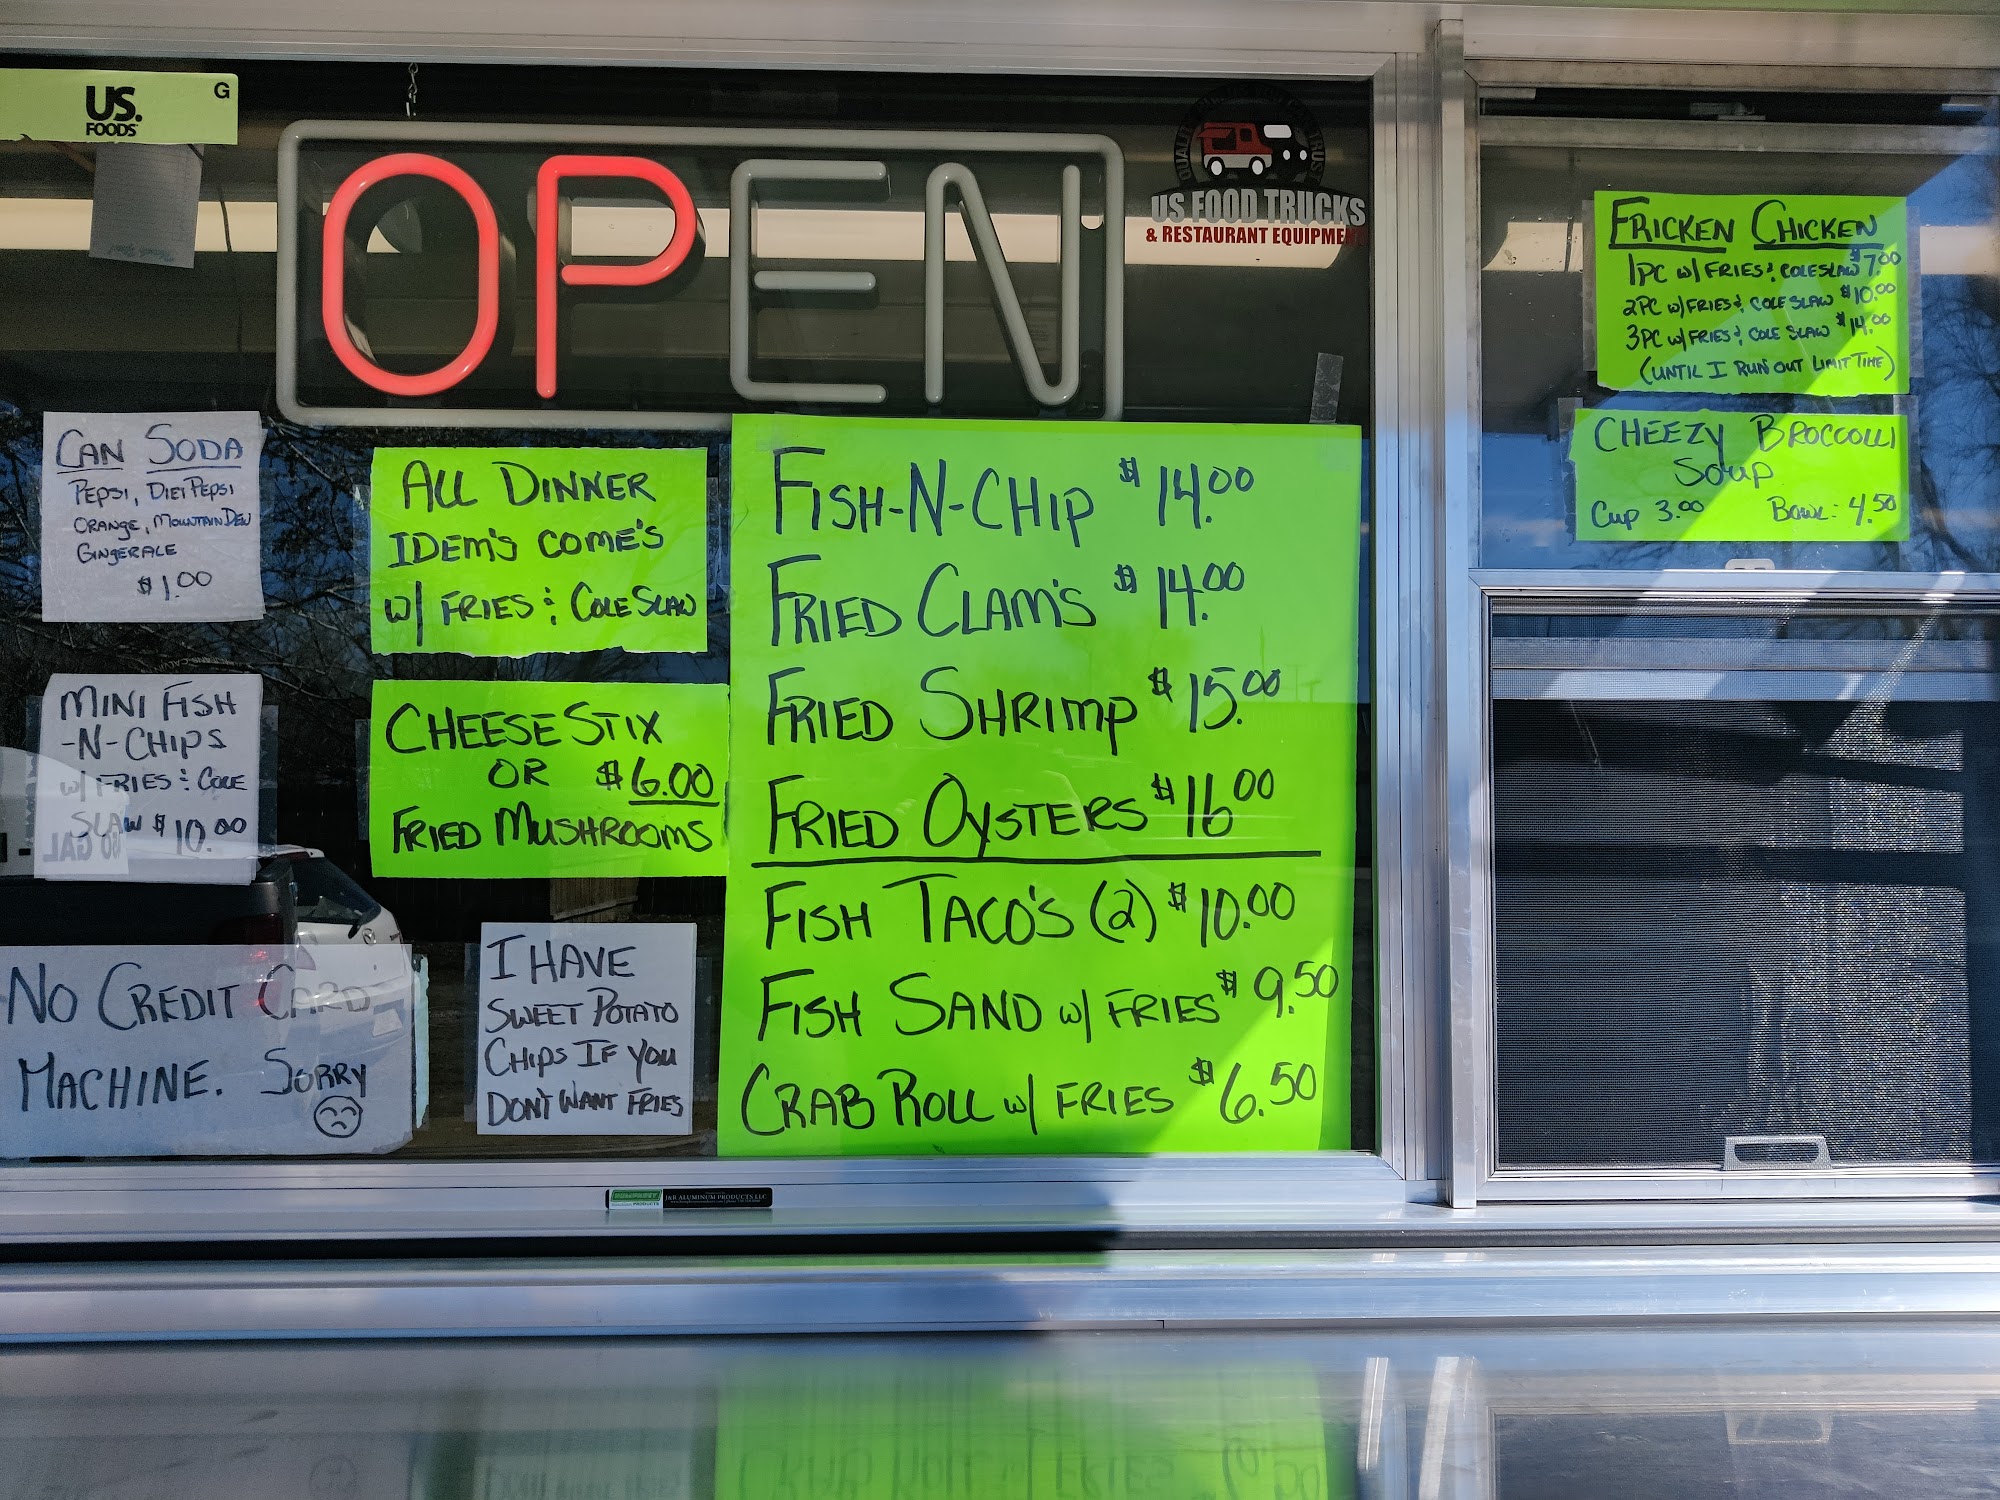 US.
FOODS
G
OPEN
US FOOD TRUCKS
& RESTAURANT EQUIPMEN
CAN SODA
PEPSI, DIET PEPSI
ORANGE, MOUNTAIN DEW
GINGERALE
$1.00
MINI FISH
-N-CHIPS
W/ FRIES & COLE
SLAW $10.00
NO CREDIT CARD
MACHINE. SORRY
ALL DINNER
IDEM'S COME'S
W/ FRIES & COLE SLAW
CHEESE STIX
OR $6.00
FRIED MUSHROOMS
I HAVE
SWEET POTATO
CHIPS IF YOU
DON'T WANT FRIES
FISH-N-CHIP $14.00
FRIED CLAM'S $14.00
FRIED SHRIMP $15.00
FRIED OYSTERS $16.00
FISH TACO'S (2) $10.00
FISH SAND W/ FRIES $9.50
CRAB ROLL W/ FRIES $6.50
FRICKEN CHICKEN
1PC W/ FRIES & COLESLAW $7.00
2PC W/ FRIES & COLE SLAW $10.00
3PC W/ FRIES & COLE SLAW $14.00
(UNTIL I RUN OUT LIMIT TIME)
CHEEZY BROCCOLLI
SOUP
CUP 3.00 BOWL: 4.50
J&R ALUMINUM PRODUCTS LLC